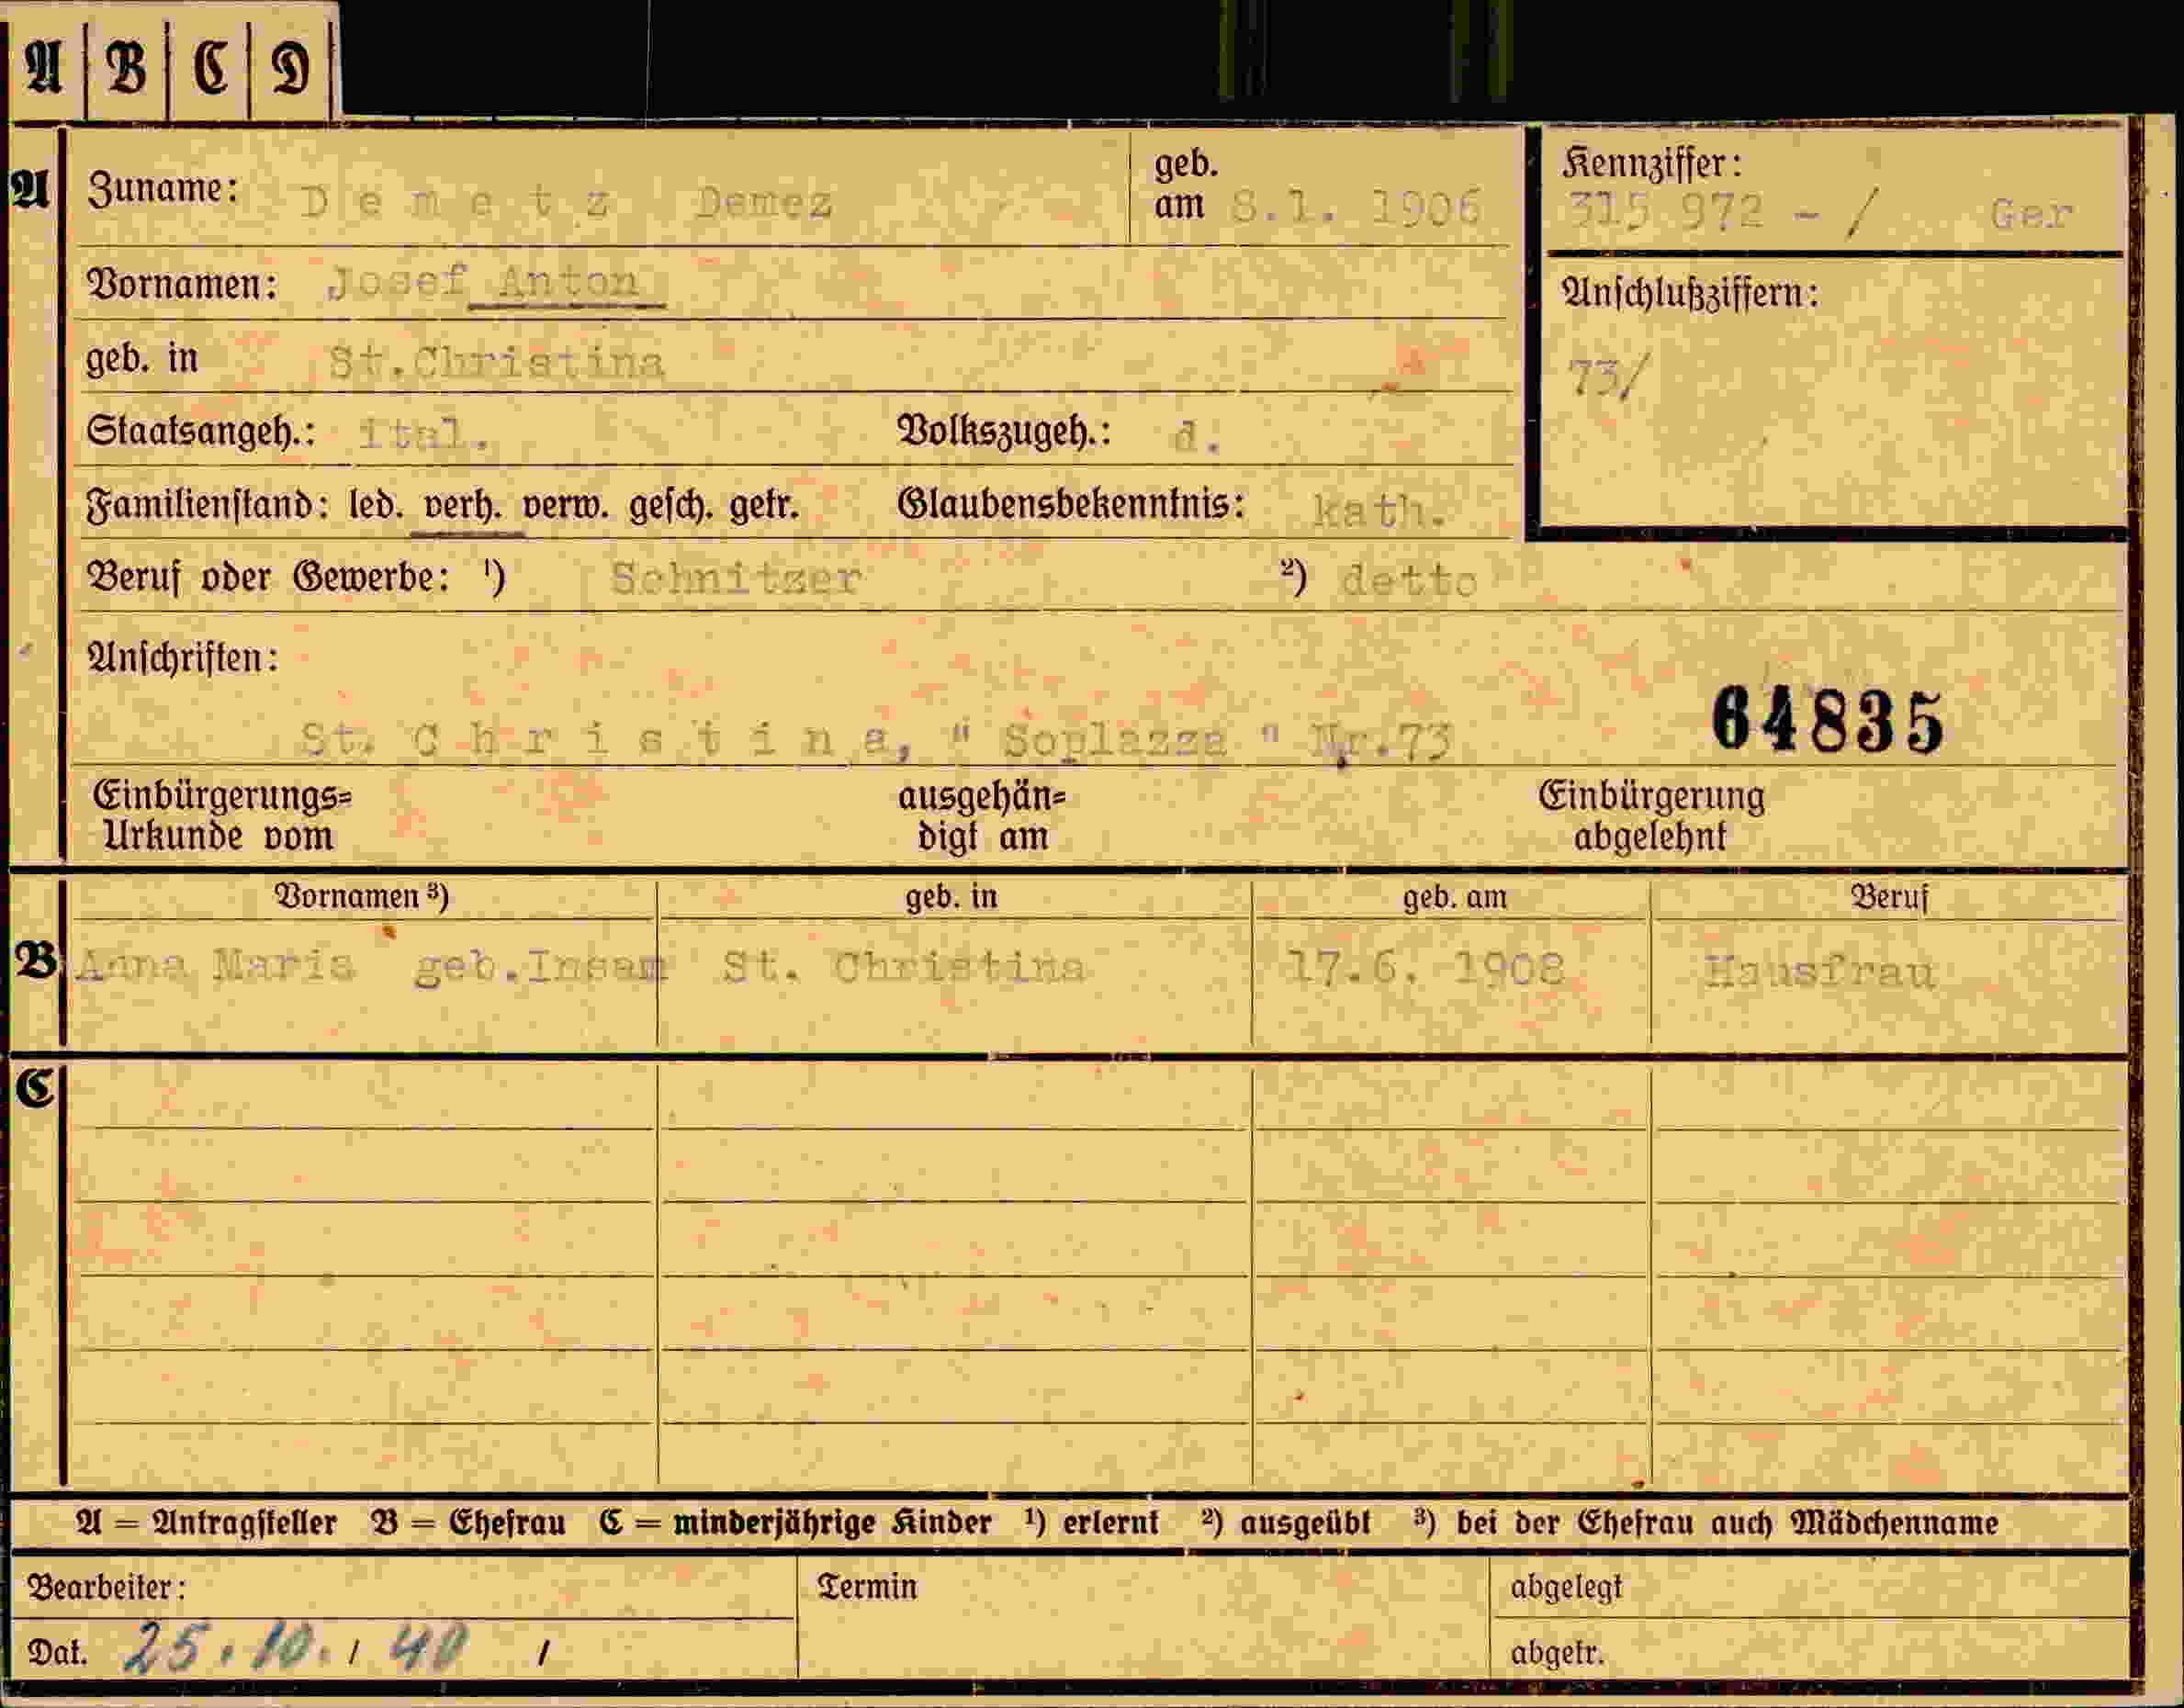 A B C D
A Zuname: Demetz Demez geb. am 8.1. 1906 Kennziffer: 315 972 - / Ger
Vornamen: Josef Anton Anschlußziffern:
geb. in St.Christina 73/
Staatsangeh.: ital. Volkszugeh.: d.
Familienstand: led. verh. verw. gesch. getr. Glaubensbekenntnis: kath.
Beruf oder Gewerbe: ¹) Schnitzer ²) detto
Anschriften:
64835
St. Christina, " Soplazza " Nr.73
Einbürgerungs= ausgehän= Einbürgerung
Urkunde vom digt am abgelehnt
Vornamen ³) geb. in geb. am Beruf
B Anna Maria geb.Insam St. Christina 17.6. 1908 Hausfrau
C
A = Antragsteller B = Ehefrau C = minderjährige Kinder ¹) erlernt ²) ausgeübt ³) bei der Ehefrau auch Mädchenname
Bearbeiter: Termin abgelegt
Dat. 25.10./ 40 / abgetr.